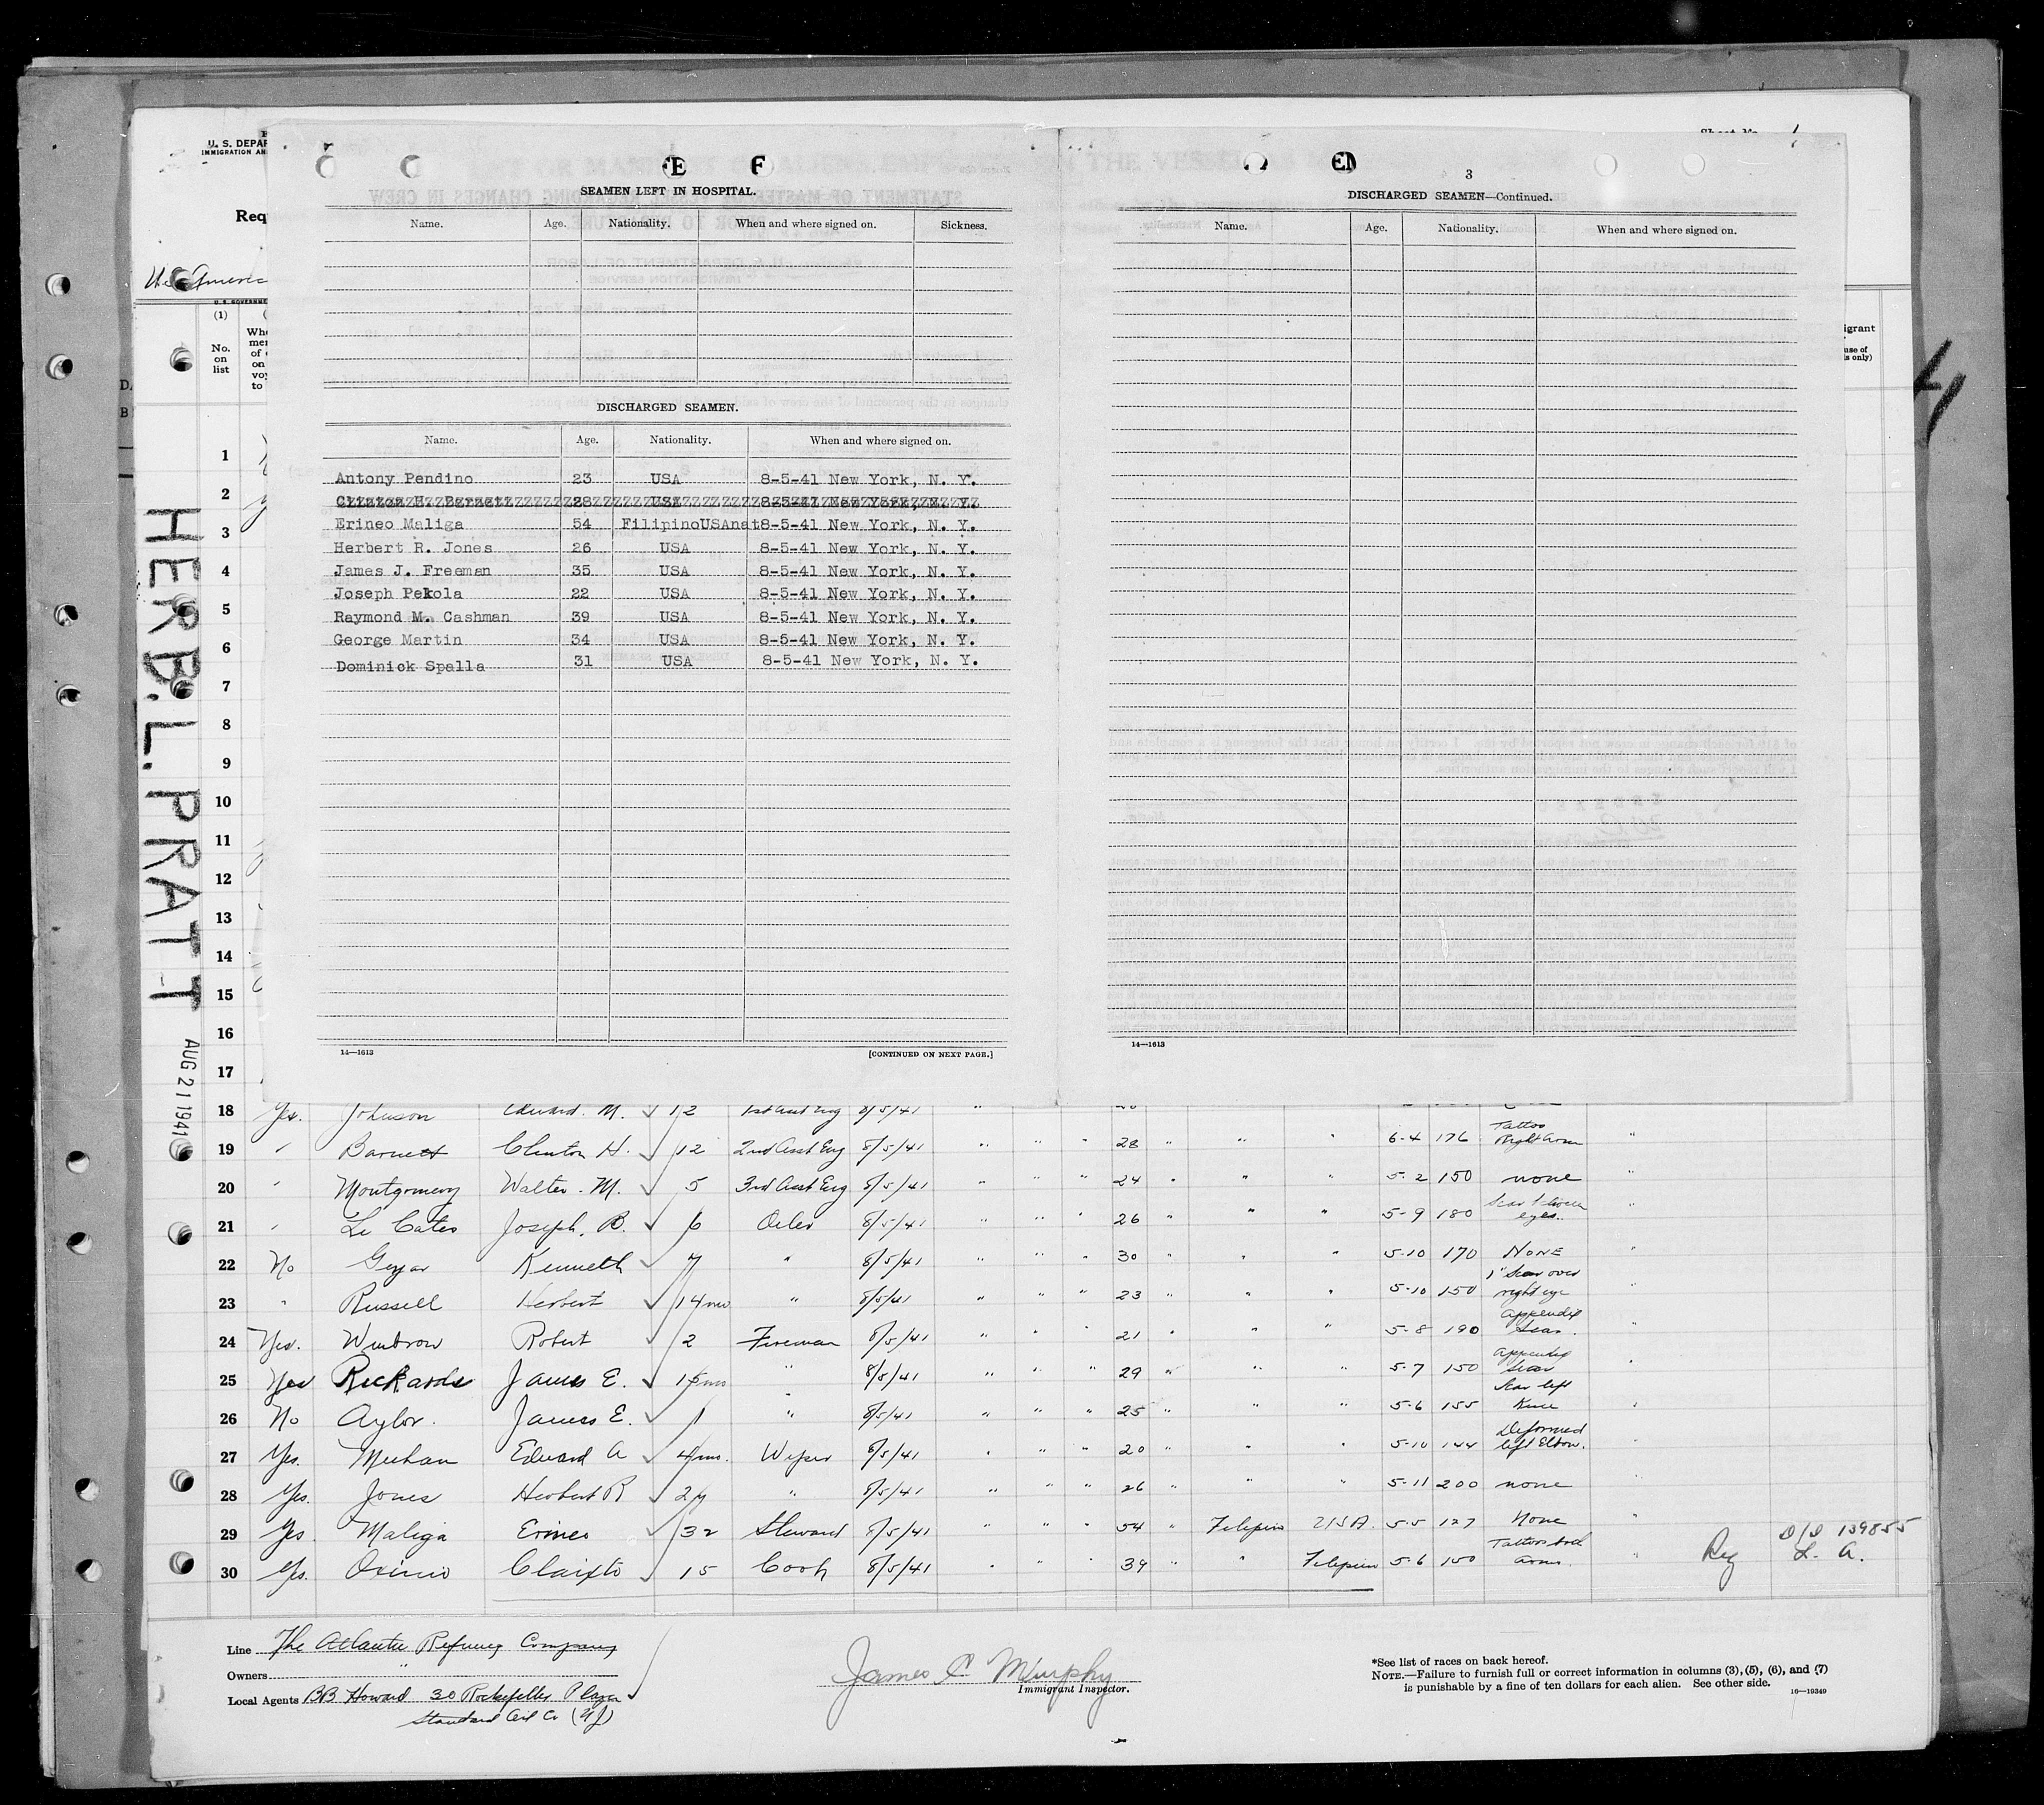 U. S. DEPAR
IMMIGRATION AN
Req
(1)
No.
on
list
HERB. L. PRATT
AUG 21 1941
4
E F
SEAMEN LEFT IN HOSPITAL.
Name. Age. Nationality. When and where signed on. Sickness.
DISCHARGED SEAMEN.
Name. Age. Nationality. When and where signed on.
Antony Pendino 23 USA 8-5-41 New York, N. Y.
Clinton H. Barnett 28 USA 8-5-41 New York, N. Y.
Erineo Maliga 54 FilipinoUSAnat 8-5-41 New York, N. Y.
Herbert R. Jones 26 USA 8-5-41 New York, N. Y.
James J. Freeman 35 USA 8-5-41 New York, N. Y.
Joseph Pekola 22 USA 8-5-41 New York, N. Y.
Raymond M. Cashman 39 USA 8-5-41 New York, N. Y.
George Martin 34 USA 8-5-41 New York, N. Y.
Dominick Spalla 31 USA 8-5-41 New York, N. Y.
14—1613 [CONTINUED ON NEXT PAGE.]
EN
3
DISCHARGED SEAMEN—Continued.
Name. Age. Nationality. When and where signed on.
14—1613
igrant
use of
s only)
1
2
3
4
5
6
7
8
9
10
11
12
13
14
15
16
17
18 Yes. Johnson Edward. M. 12 1st Asst Eng 8/5/41
19 " Barnett Clinton H. 12 2nd Asst Eng 8/5/41 " " " 28 " " " 6-4 176 Tattoo Right Arm "
20 " Montgomery Walter. M. 5 3rd Asst Eng 8/5/41 " " " 24 " " " 5-2 150 none "
21 " Le Cates Joseph. B. 6 Oiler 8/5/41 " " " 26 " " " 5-9 180 eyes. "
22 No Kenneth 7 " 8/5/41 " " " 30 " " " 5-10 170 NONE "
23 " Russell Herbert 14 mo " 8/5/41 " " " 23 " " " 5-10 150 1" Scar over right eye
24 Yes. Robert 2 Fireman 8/5/41 " " " 21 " " " 5-8 190 Appendix Scar. "
25 Yes Rickards James E. " 8/5/41 " " " 29 " " " 5-7 150 Appendix Scar "
26 No Aylor. James E. 1 " 8/5/41 " " " 25 " " " 5-6 155 Scar left Knee "
27 Yes. Meehan Edward A 4 mo. Wiper 8/5/41 " " " 20 " " " 5-10 144 Deformed left Elbow. "
28 Yes. Jones Herbert R 2 " 8/5/41 " " " 26 " " " 5-11 200 none "
29 Yes Maliga Erineo 32 Steward 8/5/41 " " " 54 " Filipino USA. 5-5 127 None "
30 Yes. Claixto 15 Cook 8/5/41 " " " 39 " " Filipino 5-6 150 Tattoo both arms. " Reg D/I 139855 L. A.
Line The Atlantic Refining Company
Owners "
Local Agents BB Howard 30 Rockefeller Plaza
Standard Oil Co (NJ)
James C. Murphy
Immigrant Inspector.
*See list of races on back hereof.
NOTE.—Failure to furnish full or correct information in columns (3), (5), (6), and (7)
is punishable by a fine of ten dollars for each alien. See other side.
16—19349